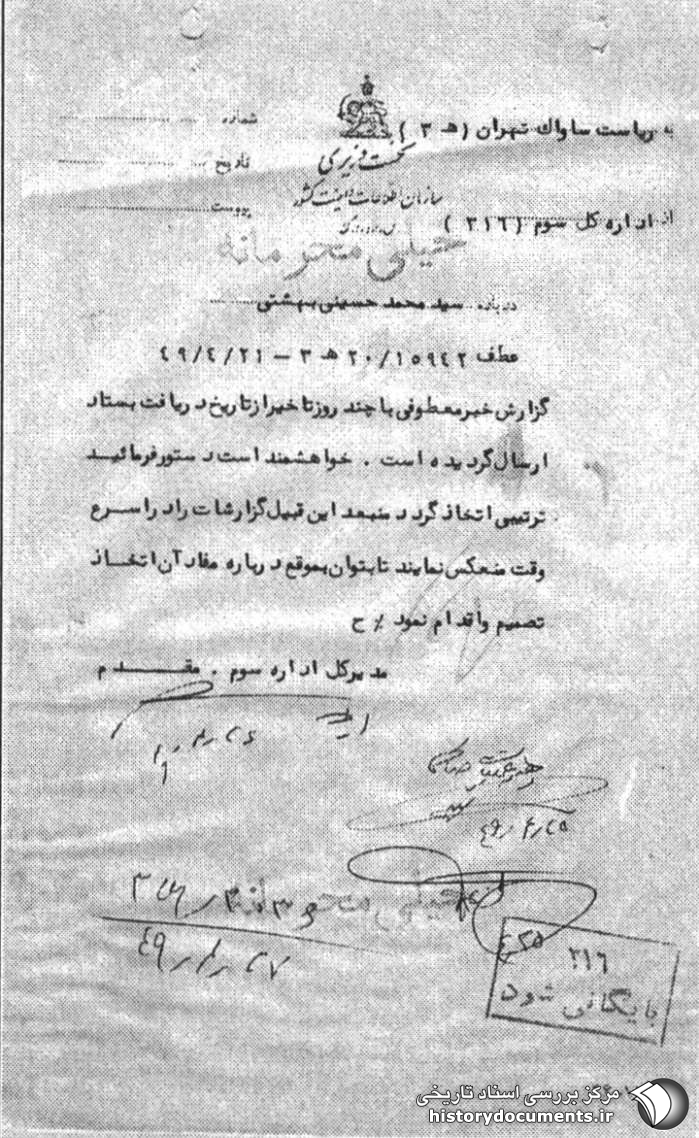 به ریاست ساواک تهران ( هـ ۳ )
شماره
نخست وزیری
تاریخ
سازمان اطلاعات و امنیت کشور
پیوست
از اداره کل سوم ( ۳۱۶ )
خیلی محرمانه
درباره سید محمد حسینی بهشتی
عطف ۲۰/۱۵۹۴۲ هـ ۳ – ۴۹/۴/۲۱
گزارش خبر معطوفی با چند روز تاخیر از تاریخ دریافت بستاد
ارسال گردیده است . خواهشمند است دستور فرمائید
ترتیبی اتخاذ گردد منبعد این قبیل گزارشات را در اسرع
وقت منعکس نمایند تا بتوان بموقع درباره مفاد آن اتخاذ
تصمیم و اقدام نمود ٪ ح
مدیر کل اداره سوم . مقدم
۴۹/۴/۲۵
خیلی محرمانه
۴۹/۴/۲۷
۳۱۶
بایگانی شود
مرکز بررسی اسناد تاریخی
historydocuments.ir